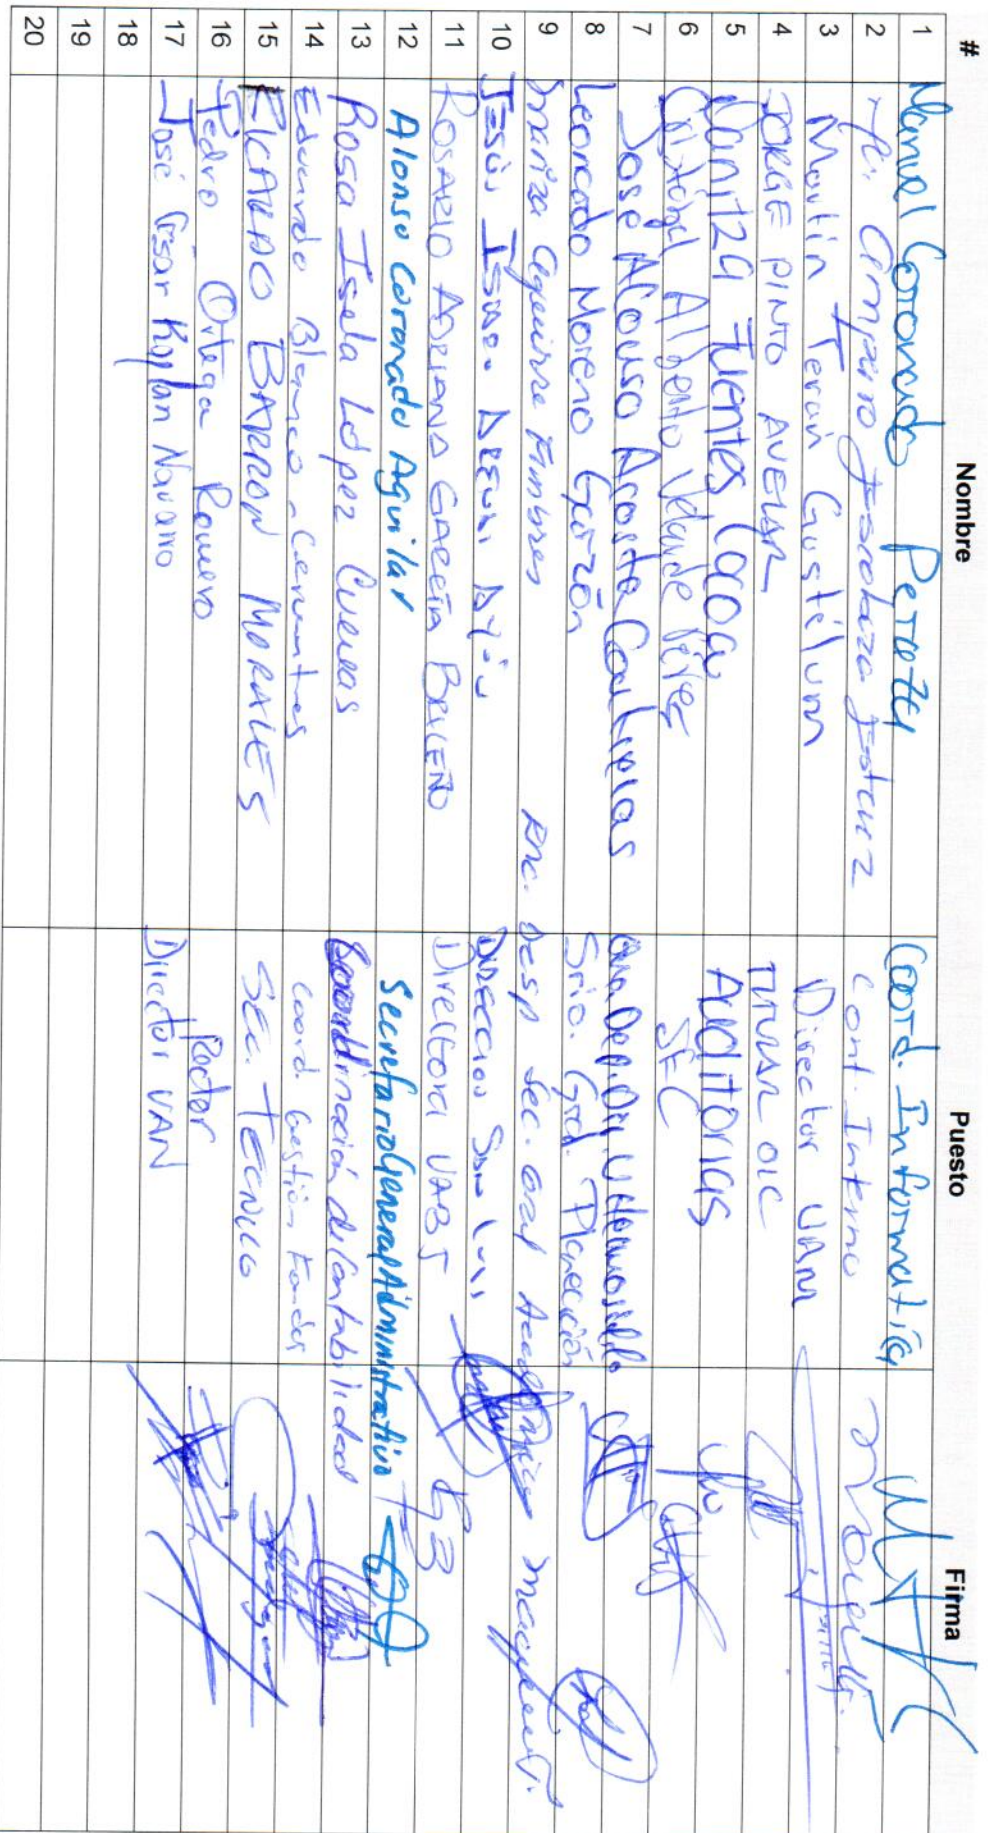 # Nombre Puesto Firma
1 Manuel Coronado Peralta Coord. Informática
2 Ma. Amparo Cont. Interno
3 Martín Terán Gastélum Director UAM
4 JORGE PINTO AVELAR TITULAR OIC
5 Daniza Fuentes Cocoa Auditorias
6 Cristóbal Alberto Velarde Pérez SEC
7 José Alonso Acosta
8 Leoncado Moreno Garzón Srio. Gral. Planeación
9 Mariza Aguirre Fimbres Enc. Desp Sec. Gral Academica
10 Jesús Dirección San Luis
11 ROSARIO ADRIANA GARCÍA BRICEÑO Directora UABJ
12 Alonso Coronado Aguilar Secretario General Administrativo
13 Rosa Isela López Cuevas Coordinación de Contabilidad
14 Eduardo Blanco Cervantes Coord. Gestión Fondos
15 RICARDO BARRON MORALES SEC. TECNICO
16 Pedro Ortega Romero Rector
17 José César Kaplan Navarro Director UAN
18
19
20